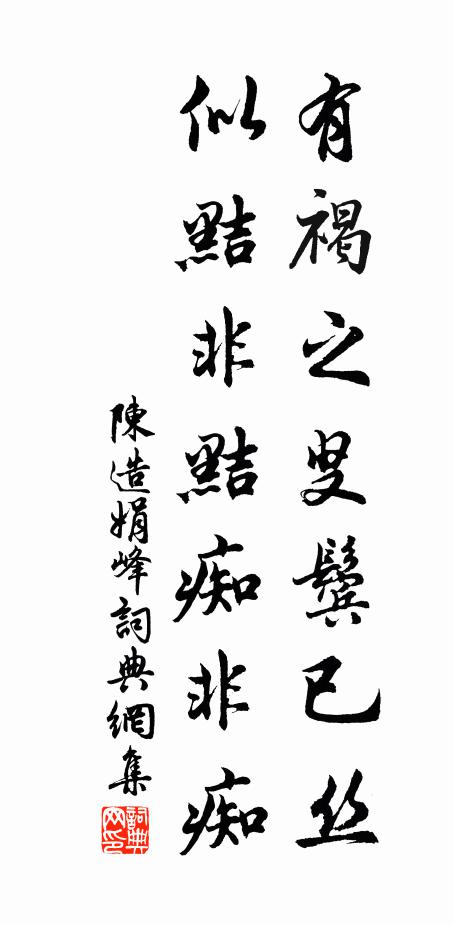 有褐之叟鬢已丝
似黠非黠痴非痴
陳造娟峰詞典網集
詞典网印